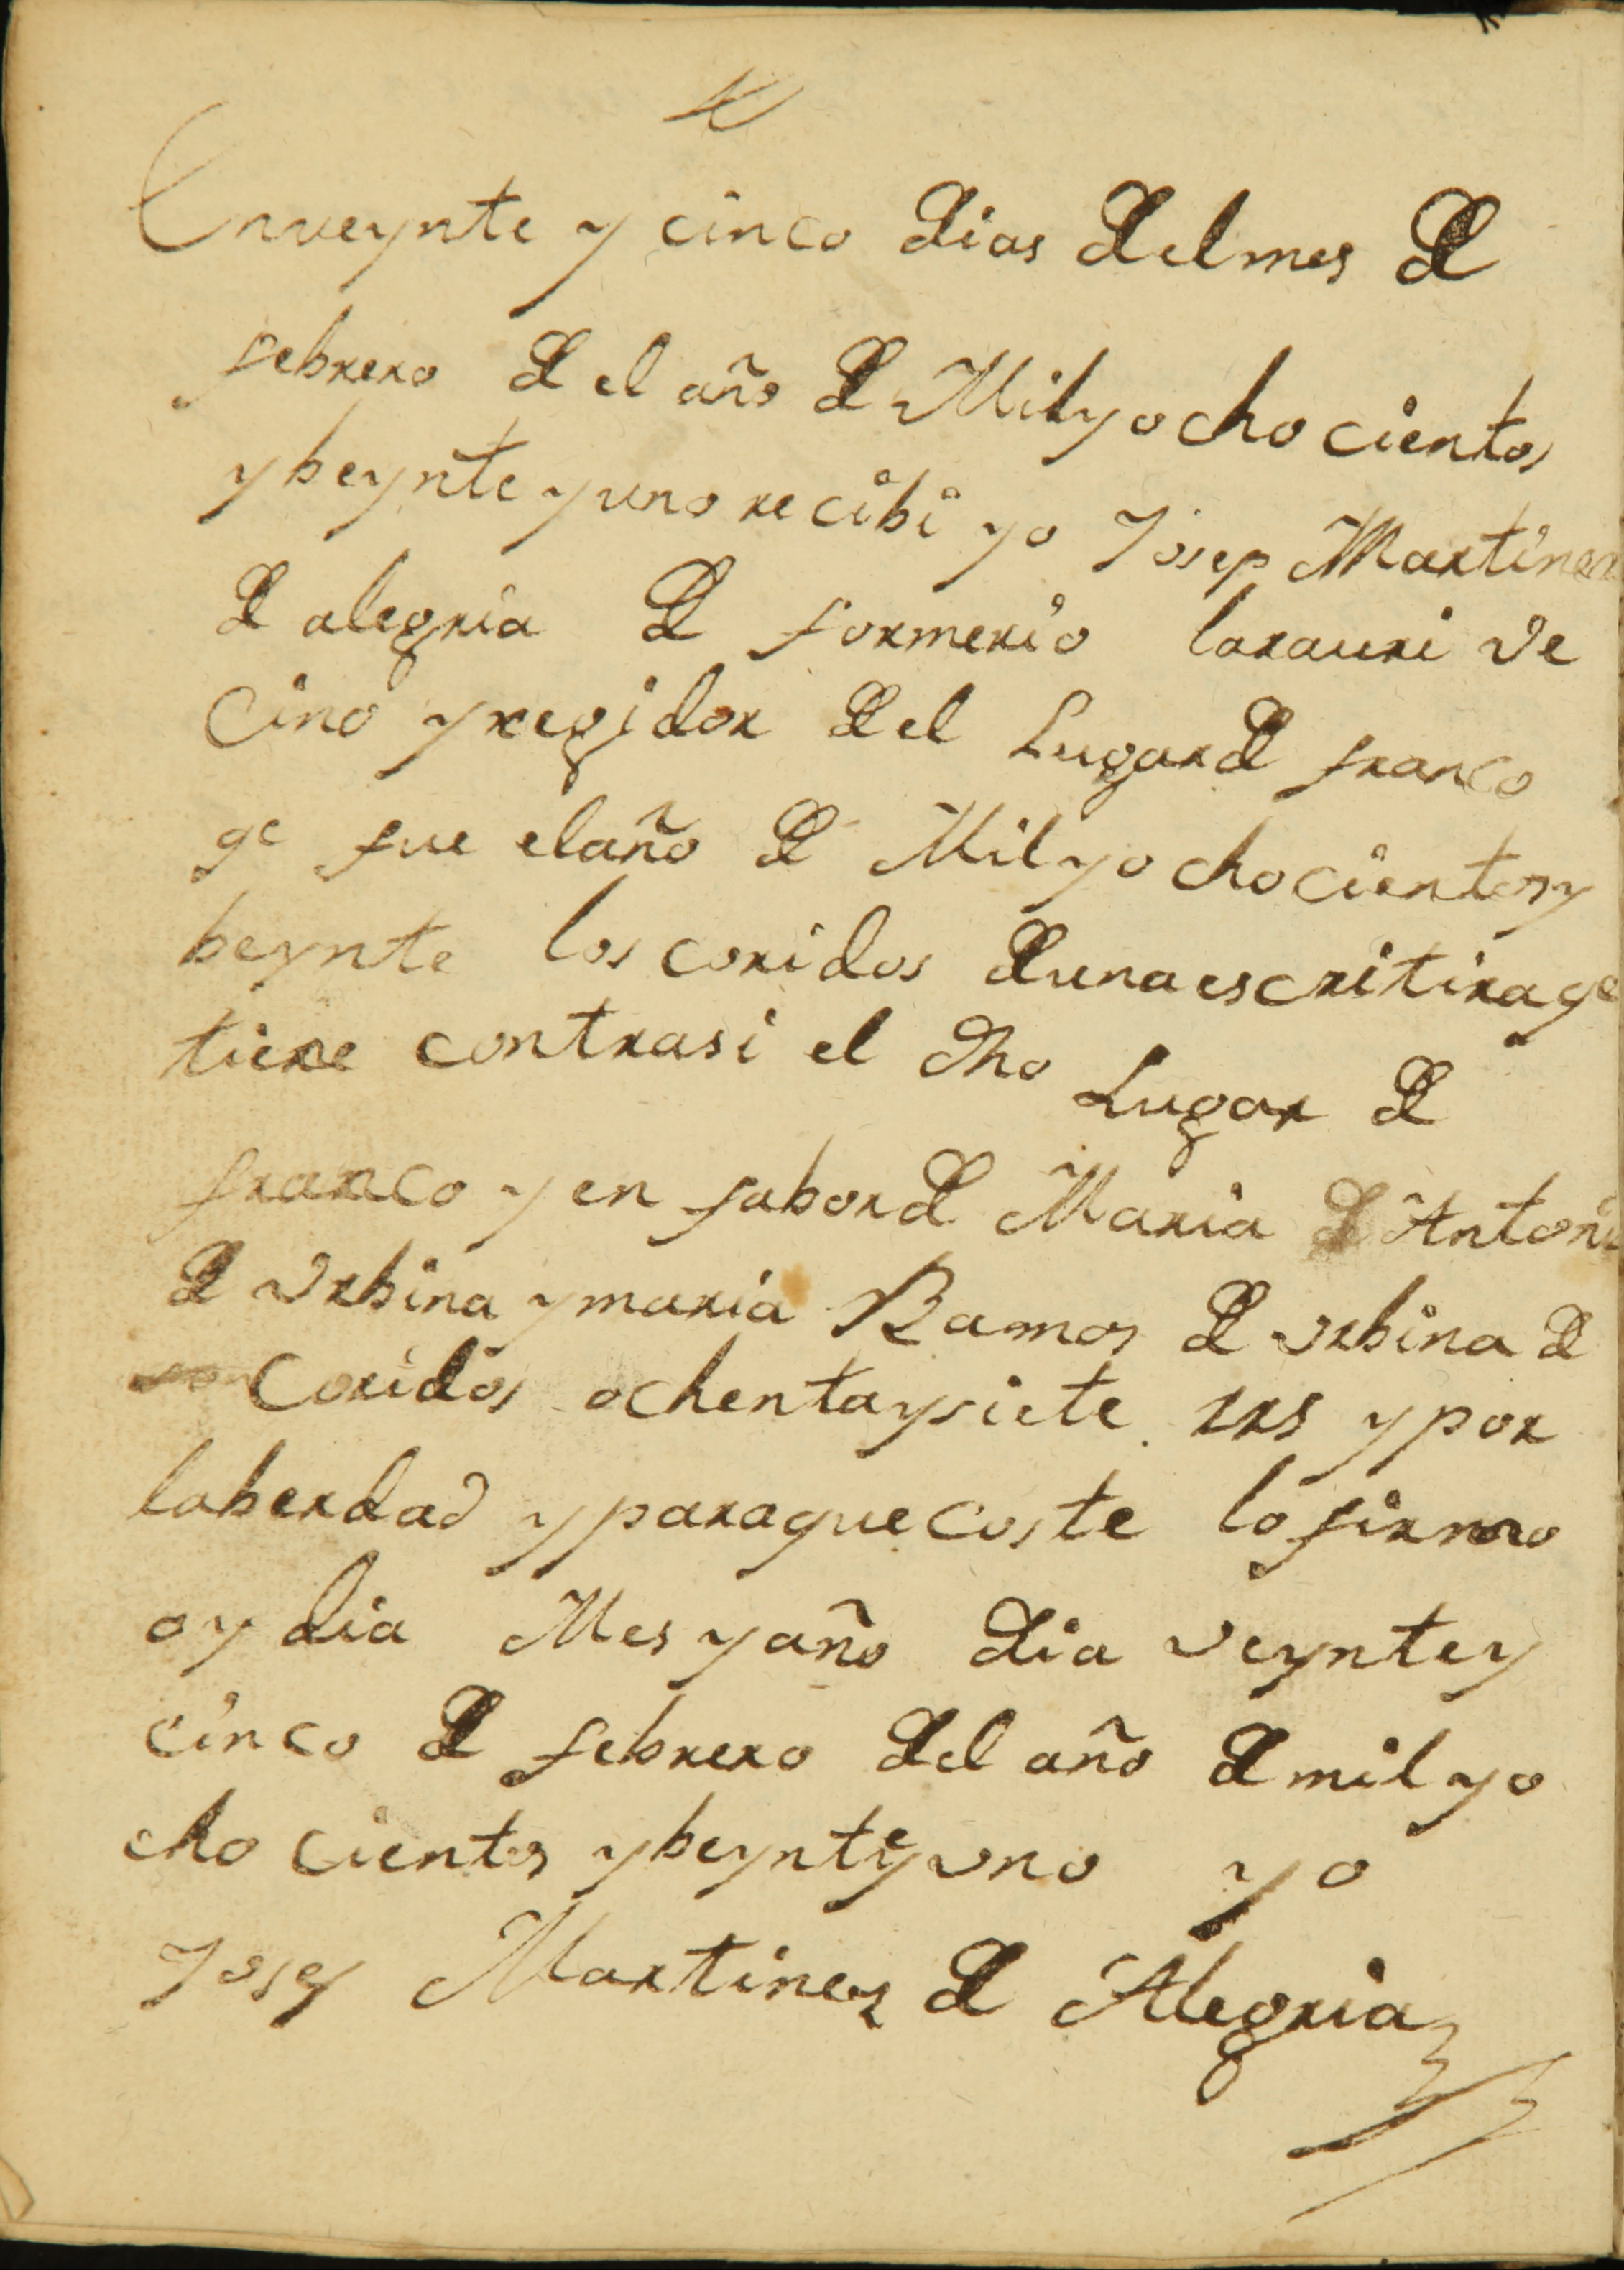 Enveynte y cinco dias delmes d
febrero d el año d Mil y ocho cientos
y beynte y uno recibi yo Josep Martinez
d alegria d formerio larauri ve
cino y regidor del Lugar d franco
qe fue el año d Mil y ocho cientos y
beynte los coridos d una escritira qe
tiene contra si el dho Lugar d
franco y en fabor d Maria d Antoni
d vrbina y maria Ramos d vrbina d
coridos ochenta y siete rrs y por
la berdad y para que coste lo firmo
oy dia Mes y año dia veynte y
cinco d febrero del año d mil y o
cho cientos y beynte y vno yo
Josep Martinez d Alegria